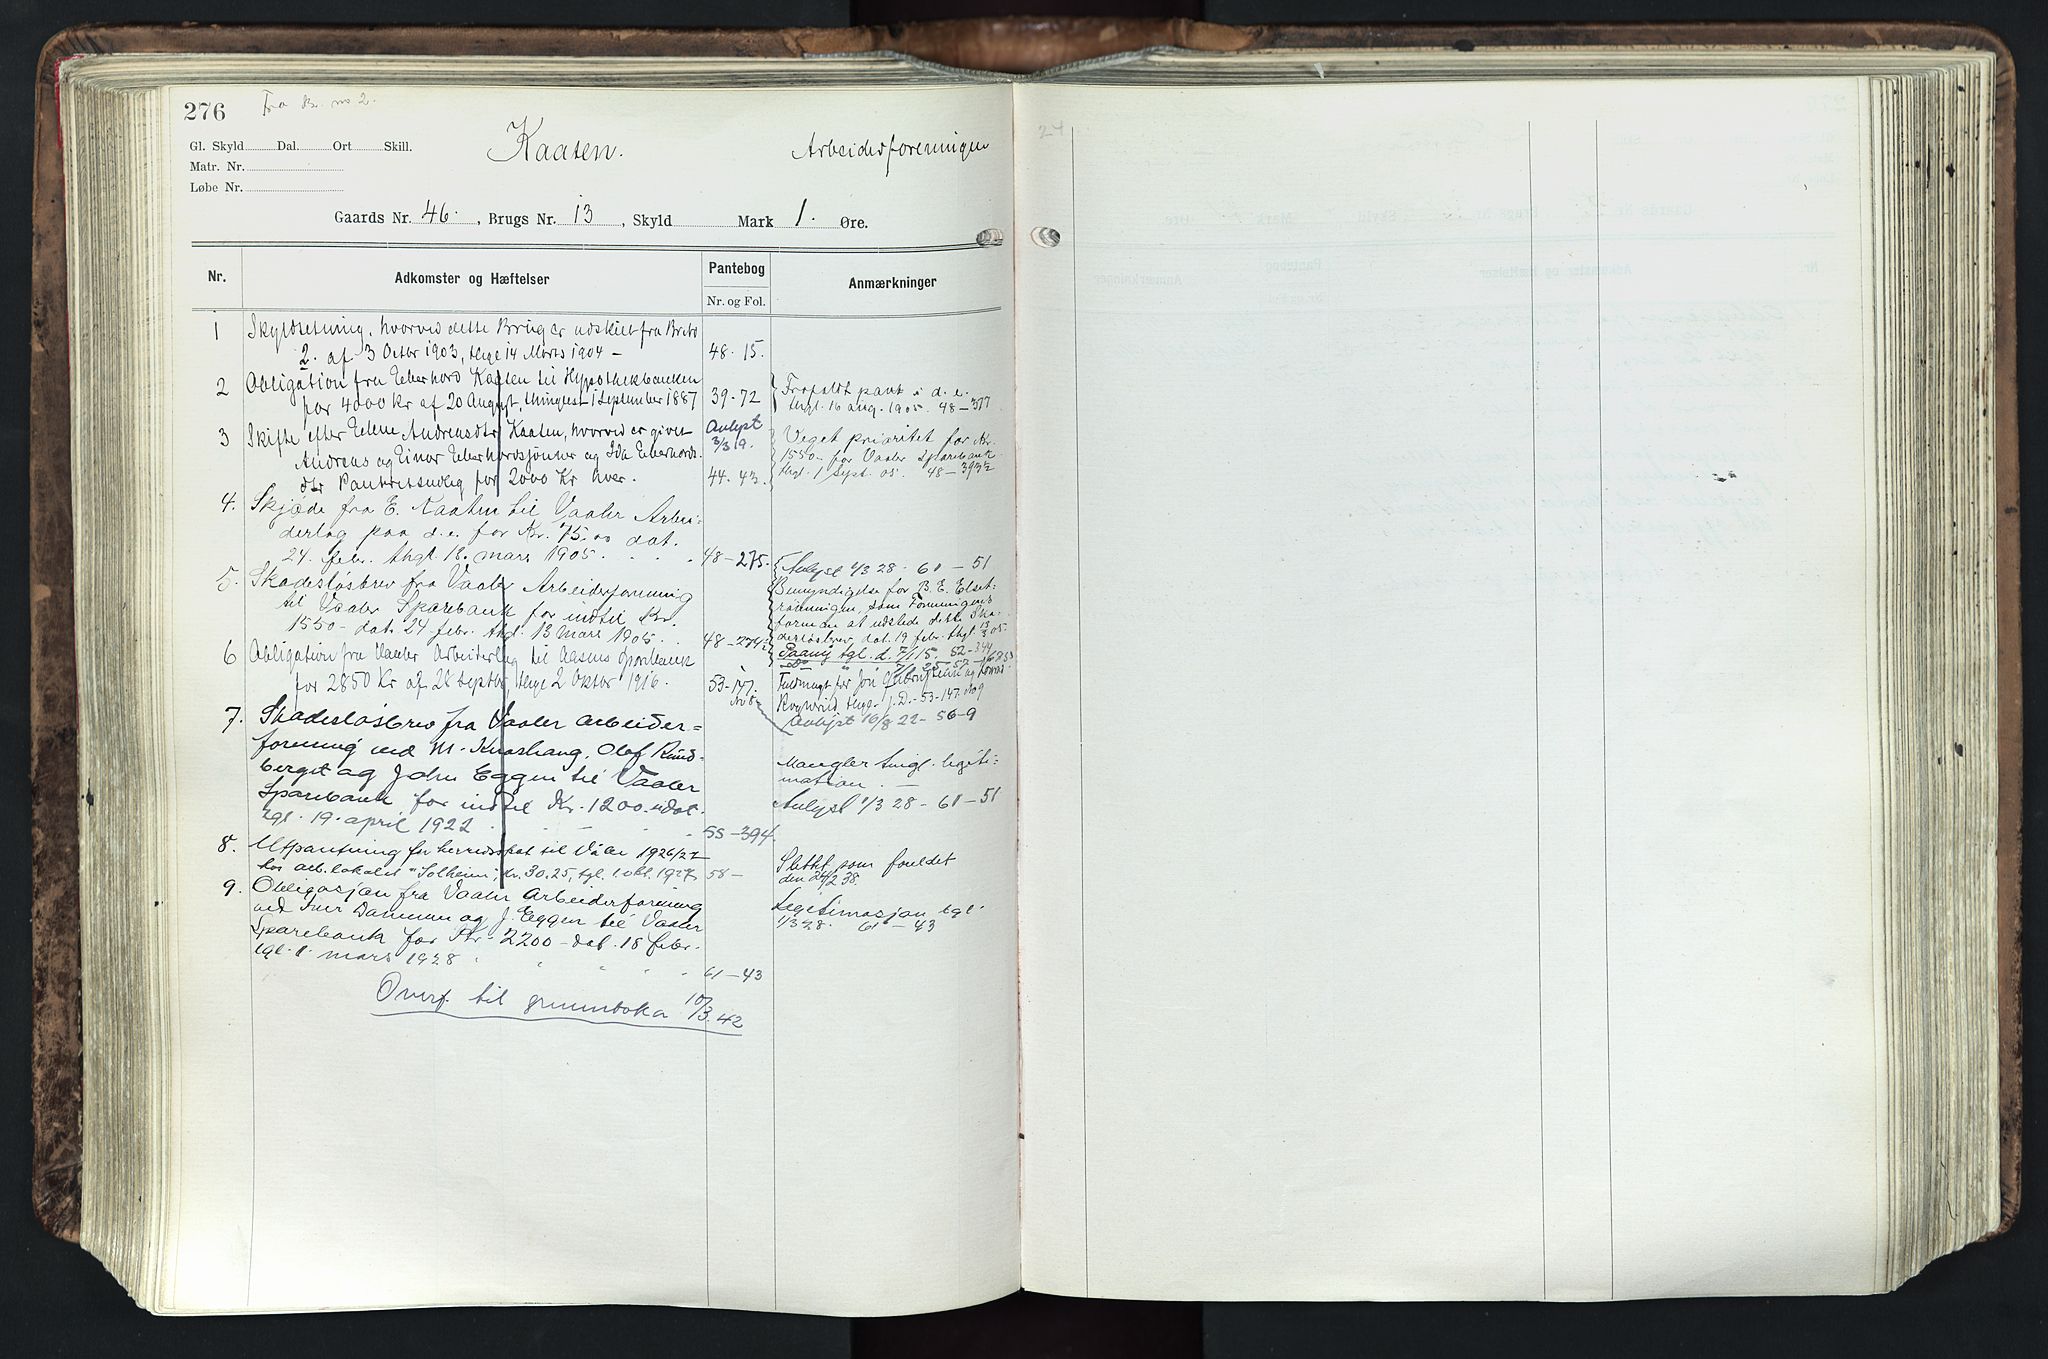 276 Fra Br. no 2.
Gl. Skyld Dal. Ort Skill.
Matr. Nr.
Løbe Nr.
Kaaten. Arbeiderforeningen
Gaards Nr. 46. , Brugs Nr. 13 , Skyld Mark 1. Øre.
Nr. Adkomster og Hæftelser Pantebog Nr. og Fol. Anmærkninger
1 Skyldsetning, hvorved dette Brug er udskilt fra Br No
2. af 3 Octbr 1903, thgl 14 Marts 1904 – 48. 15.
2 Obligation fra Eberhard Kaaten til Hypothekbanken
for 4000 Kr af 20 August, thinglest 1 September 1887 39-72
Frafaldt pant i d. e.
thgl. 16 aug. 1905. 48–377
Avlyst
3/3 19.
3 Skifte efter Elene Andreasdtr Kaaten, hvorved er givet
Andreas og Einar Eberhardsjönner og Ida Eberhards-
dtr Panteretsudlæg for 2000 Kr hver. 44. 43.
Veget prioritet for Kr.
1550.- for Vaaler Sparebank
thgl. 1 Sept. 05. 48–393½
4. Skjøde fra E. Kaaten til Vaaler Arbei-
derlag paa d. e. for Kr. 75.00 dat.
24. febr. thgl. 18. mars 1905. 48–275.
5. Skadesløsbrev fra Vaaler Arbeiderforening
til Vaaler Sparebank for indtil Kr.
1550 – dat. 24 febr. thgl. 13 mars 1905.
Avlyst 1/3 28. 61 – 51
Bemyndigelse for
foreningen, som Foreningens
formænd at udstede dette Ska-
desløsbrev, dat. 19 febr. thgl. 13/3 05.
6 Obligation fra Vaaler Arbeiderlag til Aasens Sparebank
for 2850 Kr af 28 Septbr, thgl 2 Oktbr 1916. 53-147.
Fuldmagt for
thgl. J. D. - 53-147.
Avlyst 16/8 22- 56-9
7. Skadesløsbrev fra Vaaler arbeider=
forening ved M. Knashaug, Olof Rund-
berget og John Eggen til Vaaler
Sparebank for indtil Kr. 1200.- dat.
tgl. 19. april 1922 55–394.
Mangler tingl. legiti-
mation. –
Avlyst 1/3 28 – 61 – 51
8. Utpantning for herredsskat til Våler 1926/27
hos arb.lokalet "Solheim", kr. 30.25, tgl. 1. okt. 1927 58–
Slettet som foreldet
den 24/2 38.
9. Obligasjon fra Vaaler Arbeiderforening
ved Iver Dammen og J. Eggen til Vaaler
Sparebank for Kr. 2200 – dat. 18 febr.
tgl. 1. mars 1928 61–43
Legitimasjon tgl.
1/3 28. 61 – 43
Overf. til grunnboka 10/3. 42
24